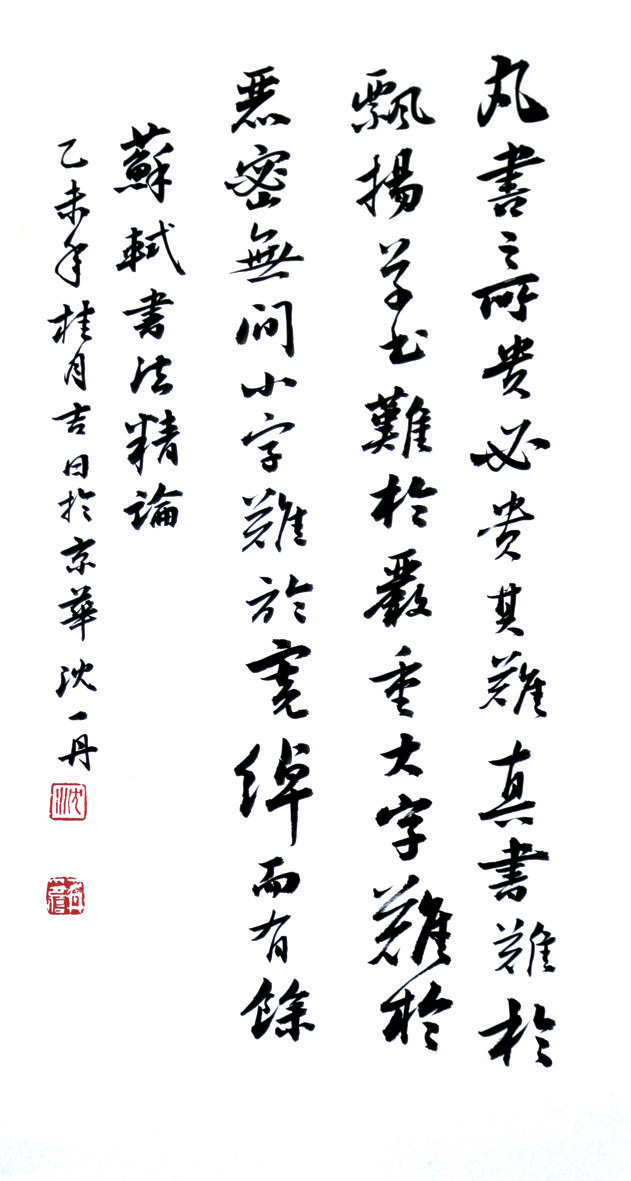 凡書之所貴必貴其難真書難於
飄揚草書難於嚴重大字難於
悪密無間小字難於寬綽而有餘
蘇軾書法精論
乙未年桂月吉日於京華沈一丹
沈